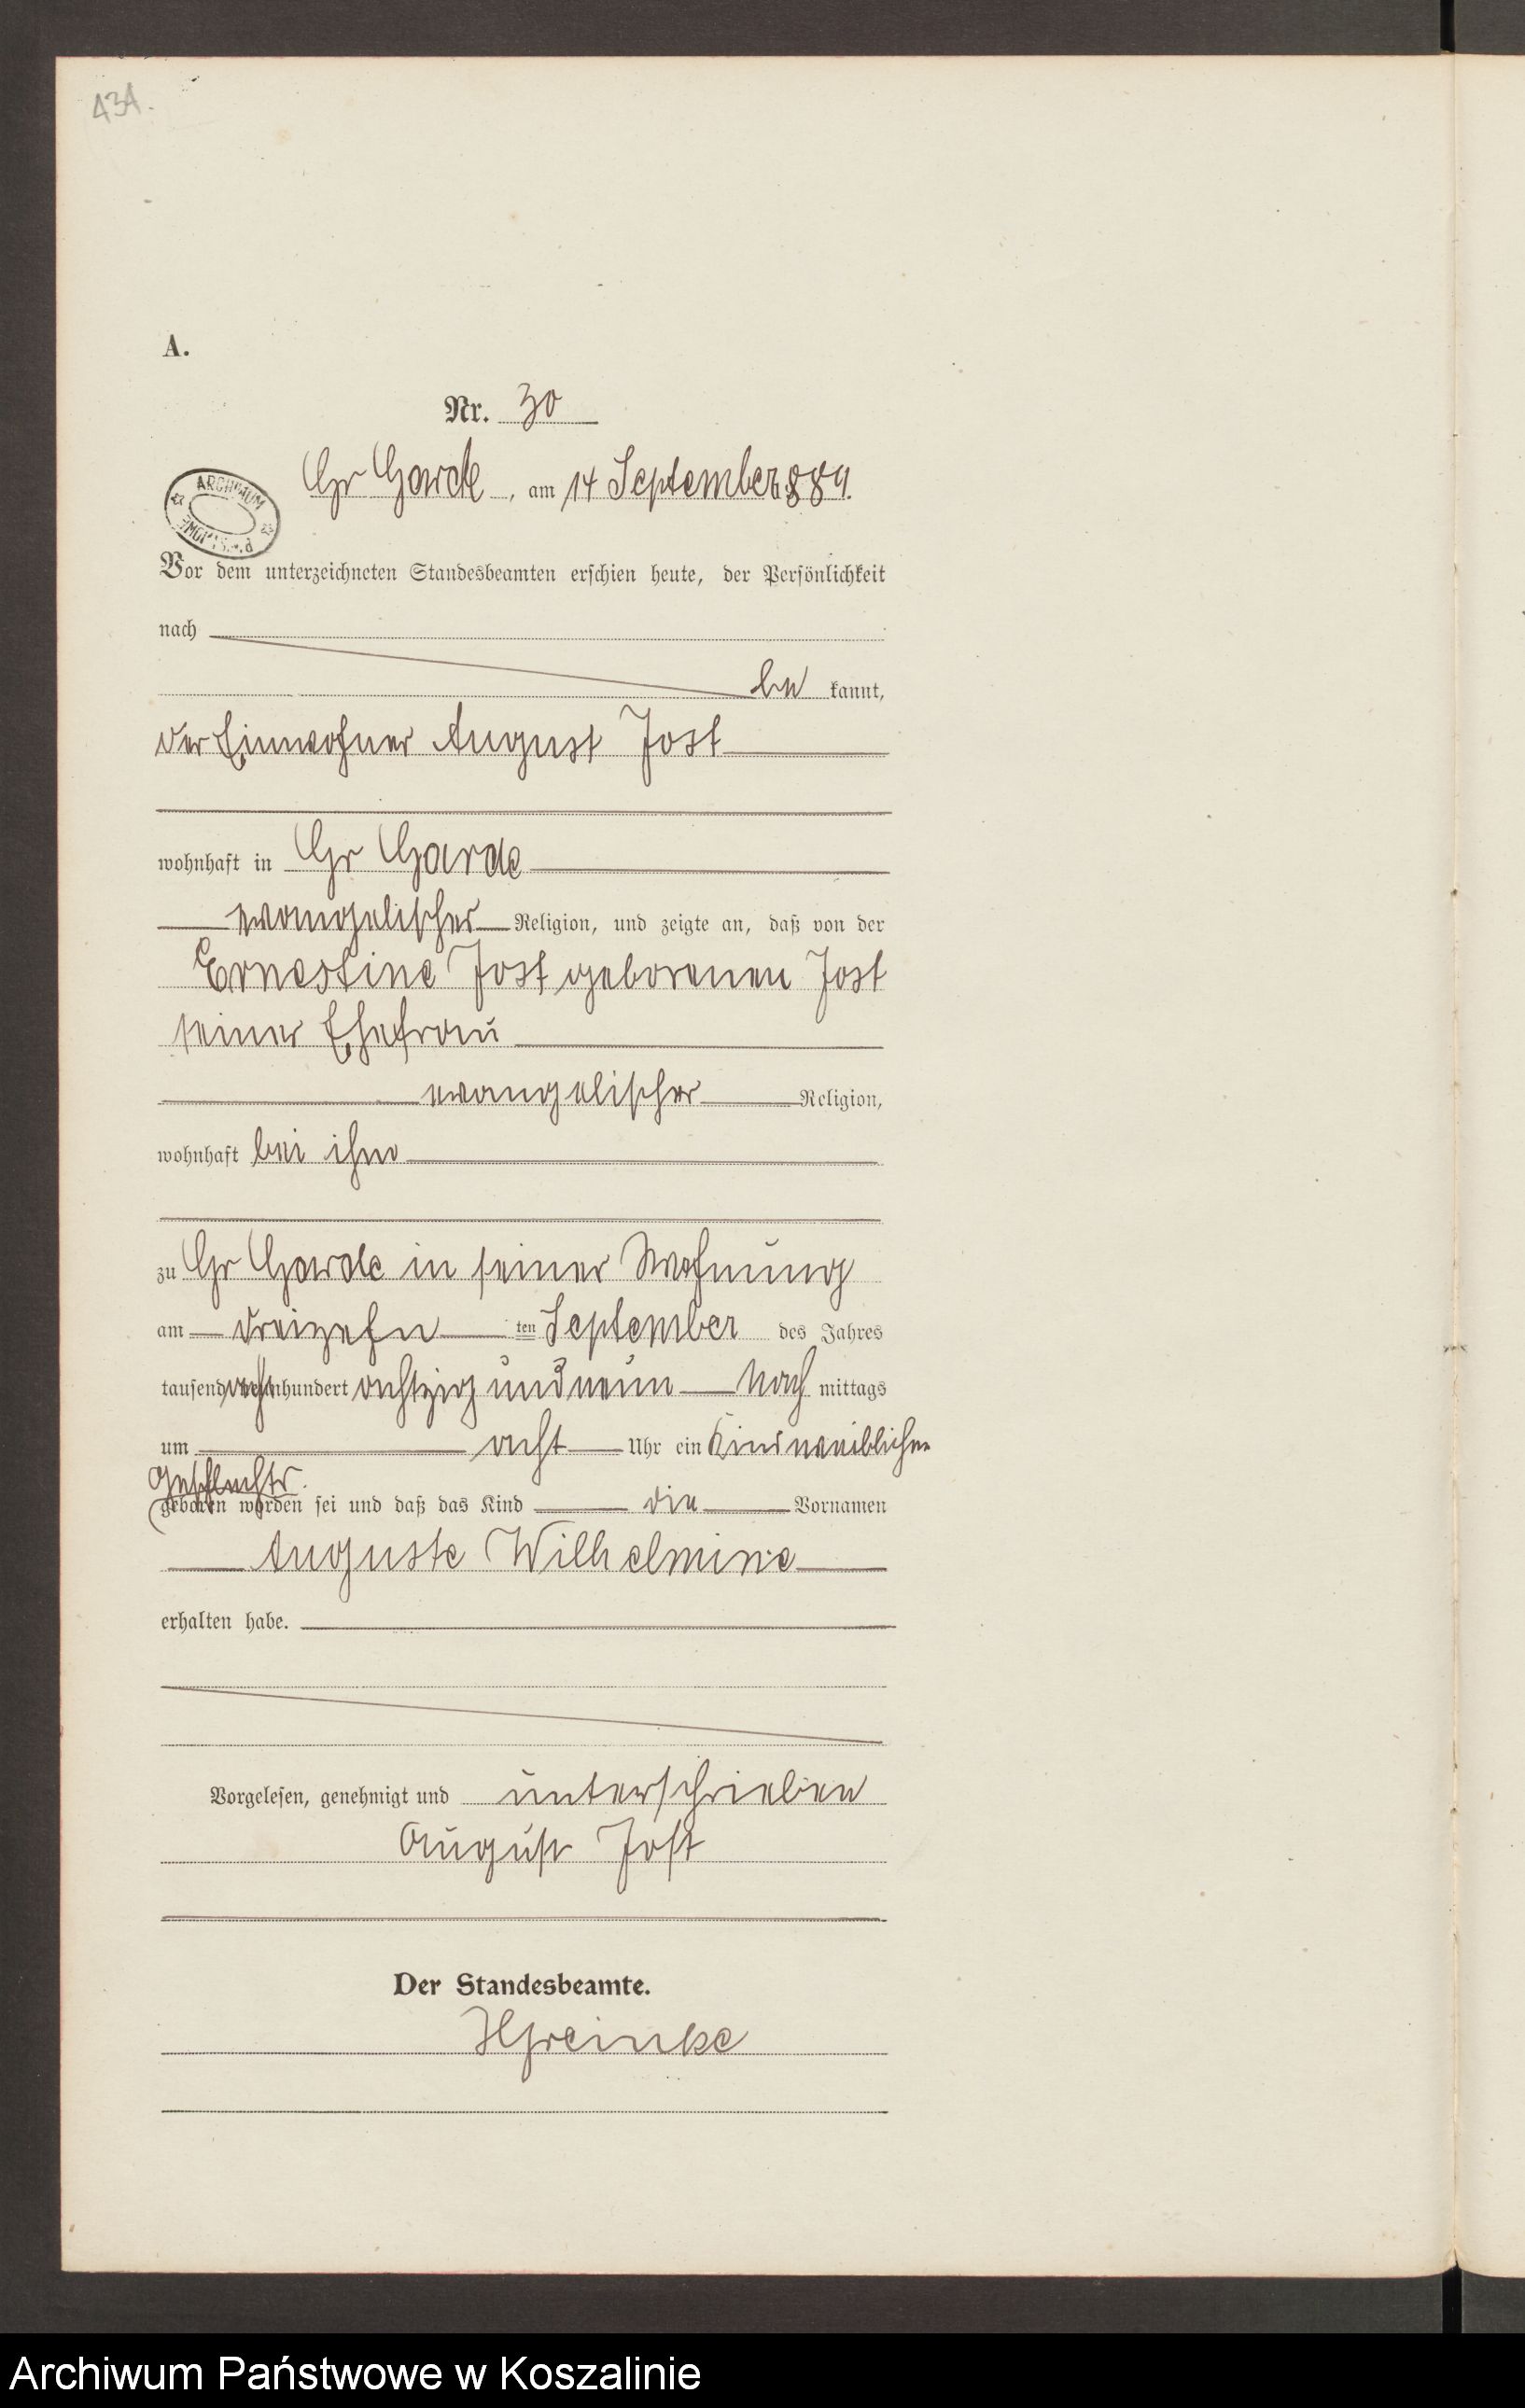 434.
A.
Nr. 30
ARCHIWUM
Gr Garde, am 14 September 1889.
Vor dem unterzeichneten Standesbeamten erschien heute, der Persönlichkeit
nach
be kannt,
der Einwohner August Jost
wohnhaft in Gr Garde
evangelischer Religion, und zeigte an, daß von der
Ernestine Jost geborenen Jost
seiner Ehefrau
evangelischer Religion,
wohnhaft bei ihm
zu Gr Garde in seiner Wohnung
am dreizehn ten September des Jahres
tausend acht hundert achtzig und neun Nach mittags
um acht Uhr ein Kind weiblichen
Geschlechts.
geboren worden sei und daß das Kind die Vornamen
Auguste Wilhelmine
erhalten habe.
Vorgelesen, genehmigt und unterschrieben
August Jost
Der Standesbeamte.
Archiwum Państwowe w Koszalinie